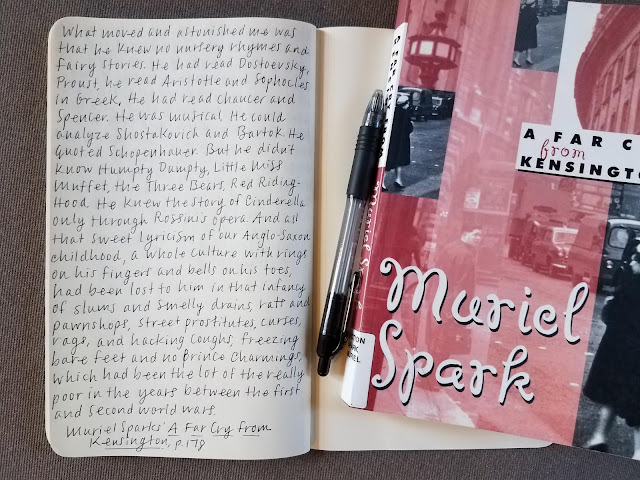 What moved and astonished me was
that he knew no nursery rhymes and
fairy stories. He had read Dostoevsky,
Proust, he read Aristotle and Sophocles
in Greek. He had read Chaucer and
Spencer. He was musical. He could
analyze Shostakovich and Bartok. He
quoted Schopenhauer. But he didn't
know Humpty Dumpty, Little Miss
Muffet, the Three Bears, Red Riding-
Hood. He knew the story of Cinderella
only through Rossini's opera. And all
that sweet lyricism of our Anglo-Saxon
childhood, a whole culture with rings
on his fingers and bells on his toes,
had been lost to him in that infancy
of slums and smelly drains, rats and
pawnshops, street prostitutes, curses,
rags, and hacking coughs, freezing
bare feet and no Prince Charmings,
which had been the lot of the really
poor in the years between the first
and second world wars.
Muriel Sparks' A Far Cry from
Kensington, p. 178
A FAR C
from
KENSINGTO
Muriel
Spark